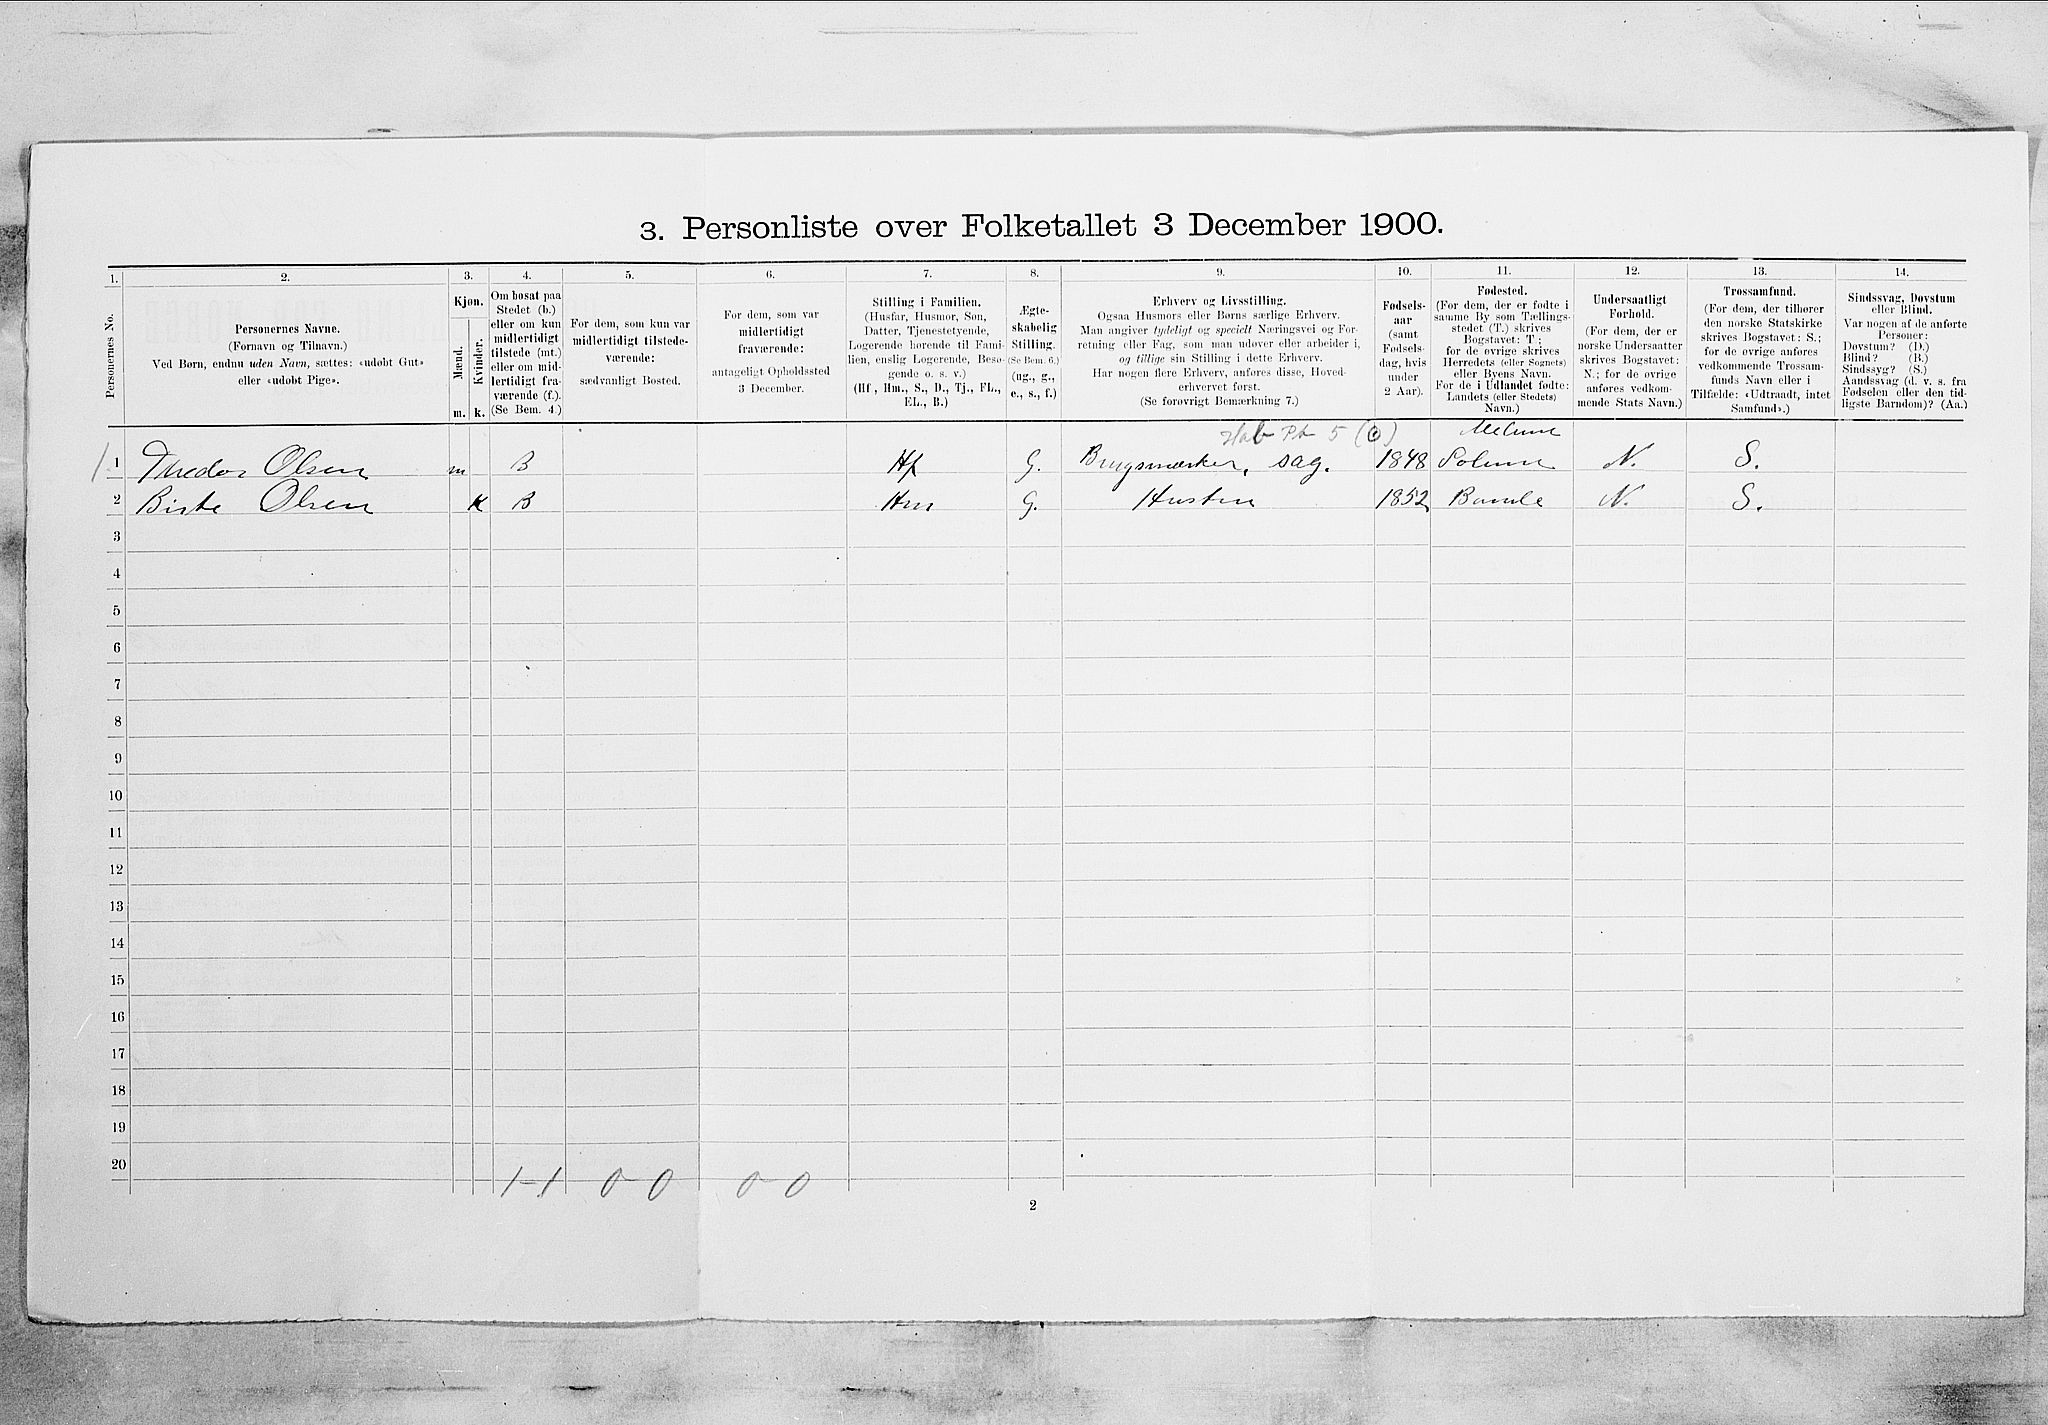 3. Personliste over Folketallet 3 December 1900.
1. 2. 3. 4. 5. 6. 7. 8. 9. 10. 11. 12. 13. 14.
Personernes No.
Personernes Navne.
(Fornavn og Tilnavn.)
Ved Børn, endnu uden Navn, sættes: «udøbt Gut»
eller «udøbt Pige».
Kjøn.
Mænd.
Kvinder.
m. k.
Om bosat paa
Stedet (b.)
eller om kun
midlertidigt
tilstede (mt.)
eller om mid-
lertidigt fra-
værende (f.).
(Se Bem. 4.)
For dem, som kun var
midlertidigt tilstede-
værende:
sædvanligt Bosted.
For dem, som var
midlertidigt
fraværende:
antageligt Opholdssted
3 December.
Stilling i Familien.
(Husfar, Husmor, Søn,
Datter, Tjenestetyende,
Logerende hørende til Fami-
lien, enslig Logerende, Besø-
gende o. s. v.)
(Hf, Hm., S., D., Tj., FL.,
EL., B.)
Ægte-
skabelig
Stilling.
(Se Bem. 6.)
(ug., g.,
e., s., f.)
Erhverv og Livsstilling.
Ogsaa Husmors eller Børns særlige Erhverv.
Man angiver tydeligt og specielt Næringsvei og For-
retning eller Fag, som man udøver eller arbeider i,
og tillige sin Stilling i dette Erhverv.
Har nogen flere Erhverv, anføres disse, Hoved-
erhvervet først.
(Se forøvrigt Bemærkning 7.)
Fødsels-
aar
(samt
Fødsels-
dag, hvis
under
2 Aar).
Fødested.
(For dem, der er fødte i
samme By som Tællings-
stedet (T.) skrives
Bogstavet: T;
for de øvrige skrives
Herredets (eller Sognets)
eller Byens Navn.
For de i Udlandet fødte:
Landets (eller Stedets)
Navn.)
Undersaatligt
Forhold.
(For dem, der er
norske Undersaatter
skrives Bogstavet:
N.; for de øvrige
anføres vedkom-
mende Stats Navn.)
Trossamfund.
(For dem, der tilhører
den norske Statskirke
skrives Bogstavet: S.;
for de øvrige anføres
vedkommende Trossam-
funds Navn eller i
Tilfælde: «Udtraadt, intet
Samfund».)
Sindssvag, Døvstum
eller Blind.
Var nogen af de anførte
Personer:
Døvstum? (D.)
Blind? (B.)
Sindssyg? (S.)
Aandssvag (d. v. s. fra
Fødselen eller den tid-
ligste Barndom)? (Aa.)
5 Melum
1 Thedor Olsen m B Hf G. sag. 1848 Solum N. S.
2 Birte Olsen K B Hm G. Hustru 1852 Bamle N. S.
3
4
5
6
7
8
9
10
11
12
13
14
15
16
17
18
19
20
1-1 0-0 0-0
2